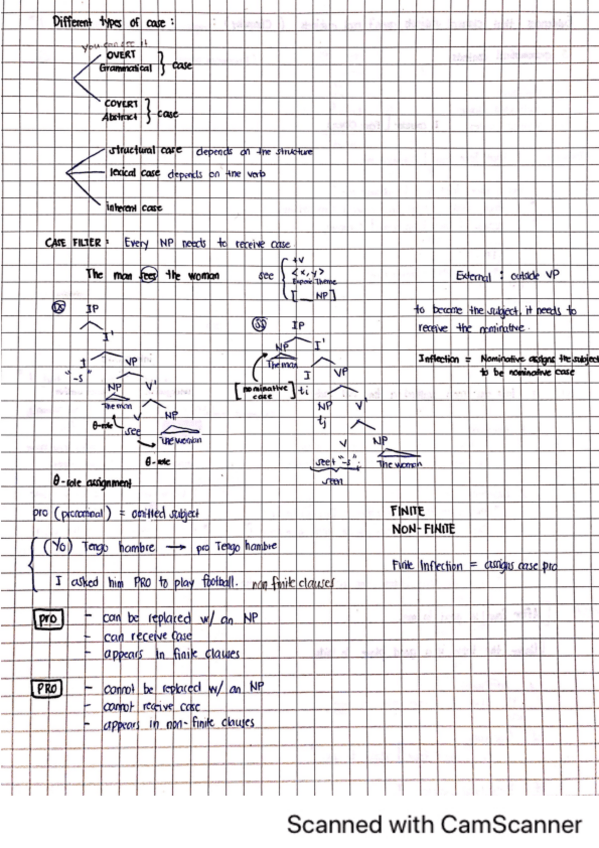 Different types of case :
you can see it
OVERT
Grammatical } case
COVERT
Abstract } case
structural case depends on the structure
lexical case depends on the verb
inherent case
CASE FILTER : Every NP needs to receive case
The man sees the woman
see
+V
<x, y>
Theme
[ __ NP]
External : outside VP
to become the subject, it needs to
receive the nominative.
Inflection = Nominative assigns the subject
to be nominative case
DS IP
I'
I VP
"-s"
NP V'
The man
V NP
θ-role see The woman
θ-role
θ-role assignment
SS IP
NP I'
The man
I VP
[nominative case] ti
NP V'
tj
V NP
see + "-s" The woman
pro (pronominal) = omitted subject
(Yo) Tengo hambre → pro Tengo hambre
I asked him PRO to play football. non finite clauses
FINITE
NON-FINITE
Finite Inflection = assigns case pro
pro - can be replaced w/ an NP
- can receive case
- appears in finite clauses
PRO - cannot be replaced w/ an NP
- cannot receive case
- appears in non-finite clauses
Scanned with CamScanner